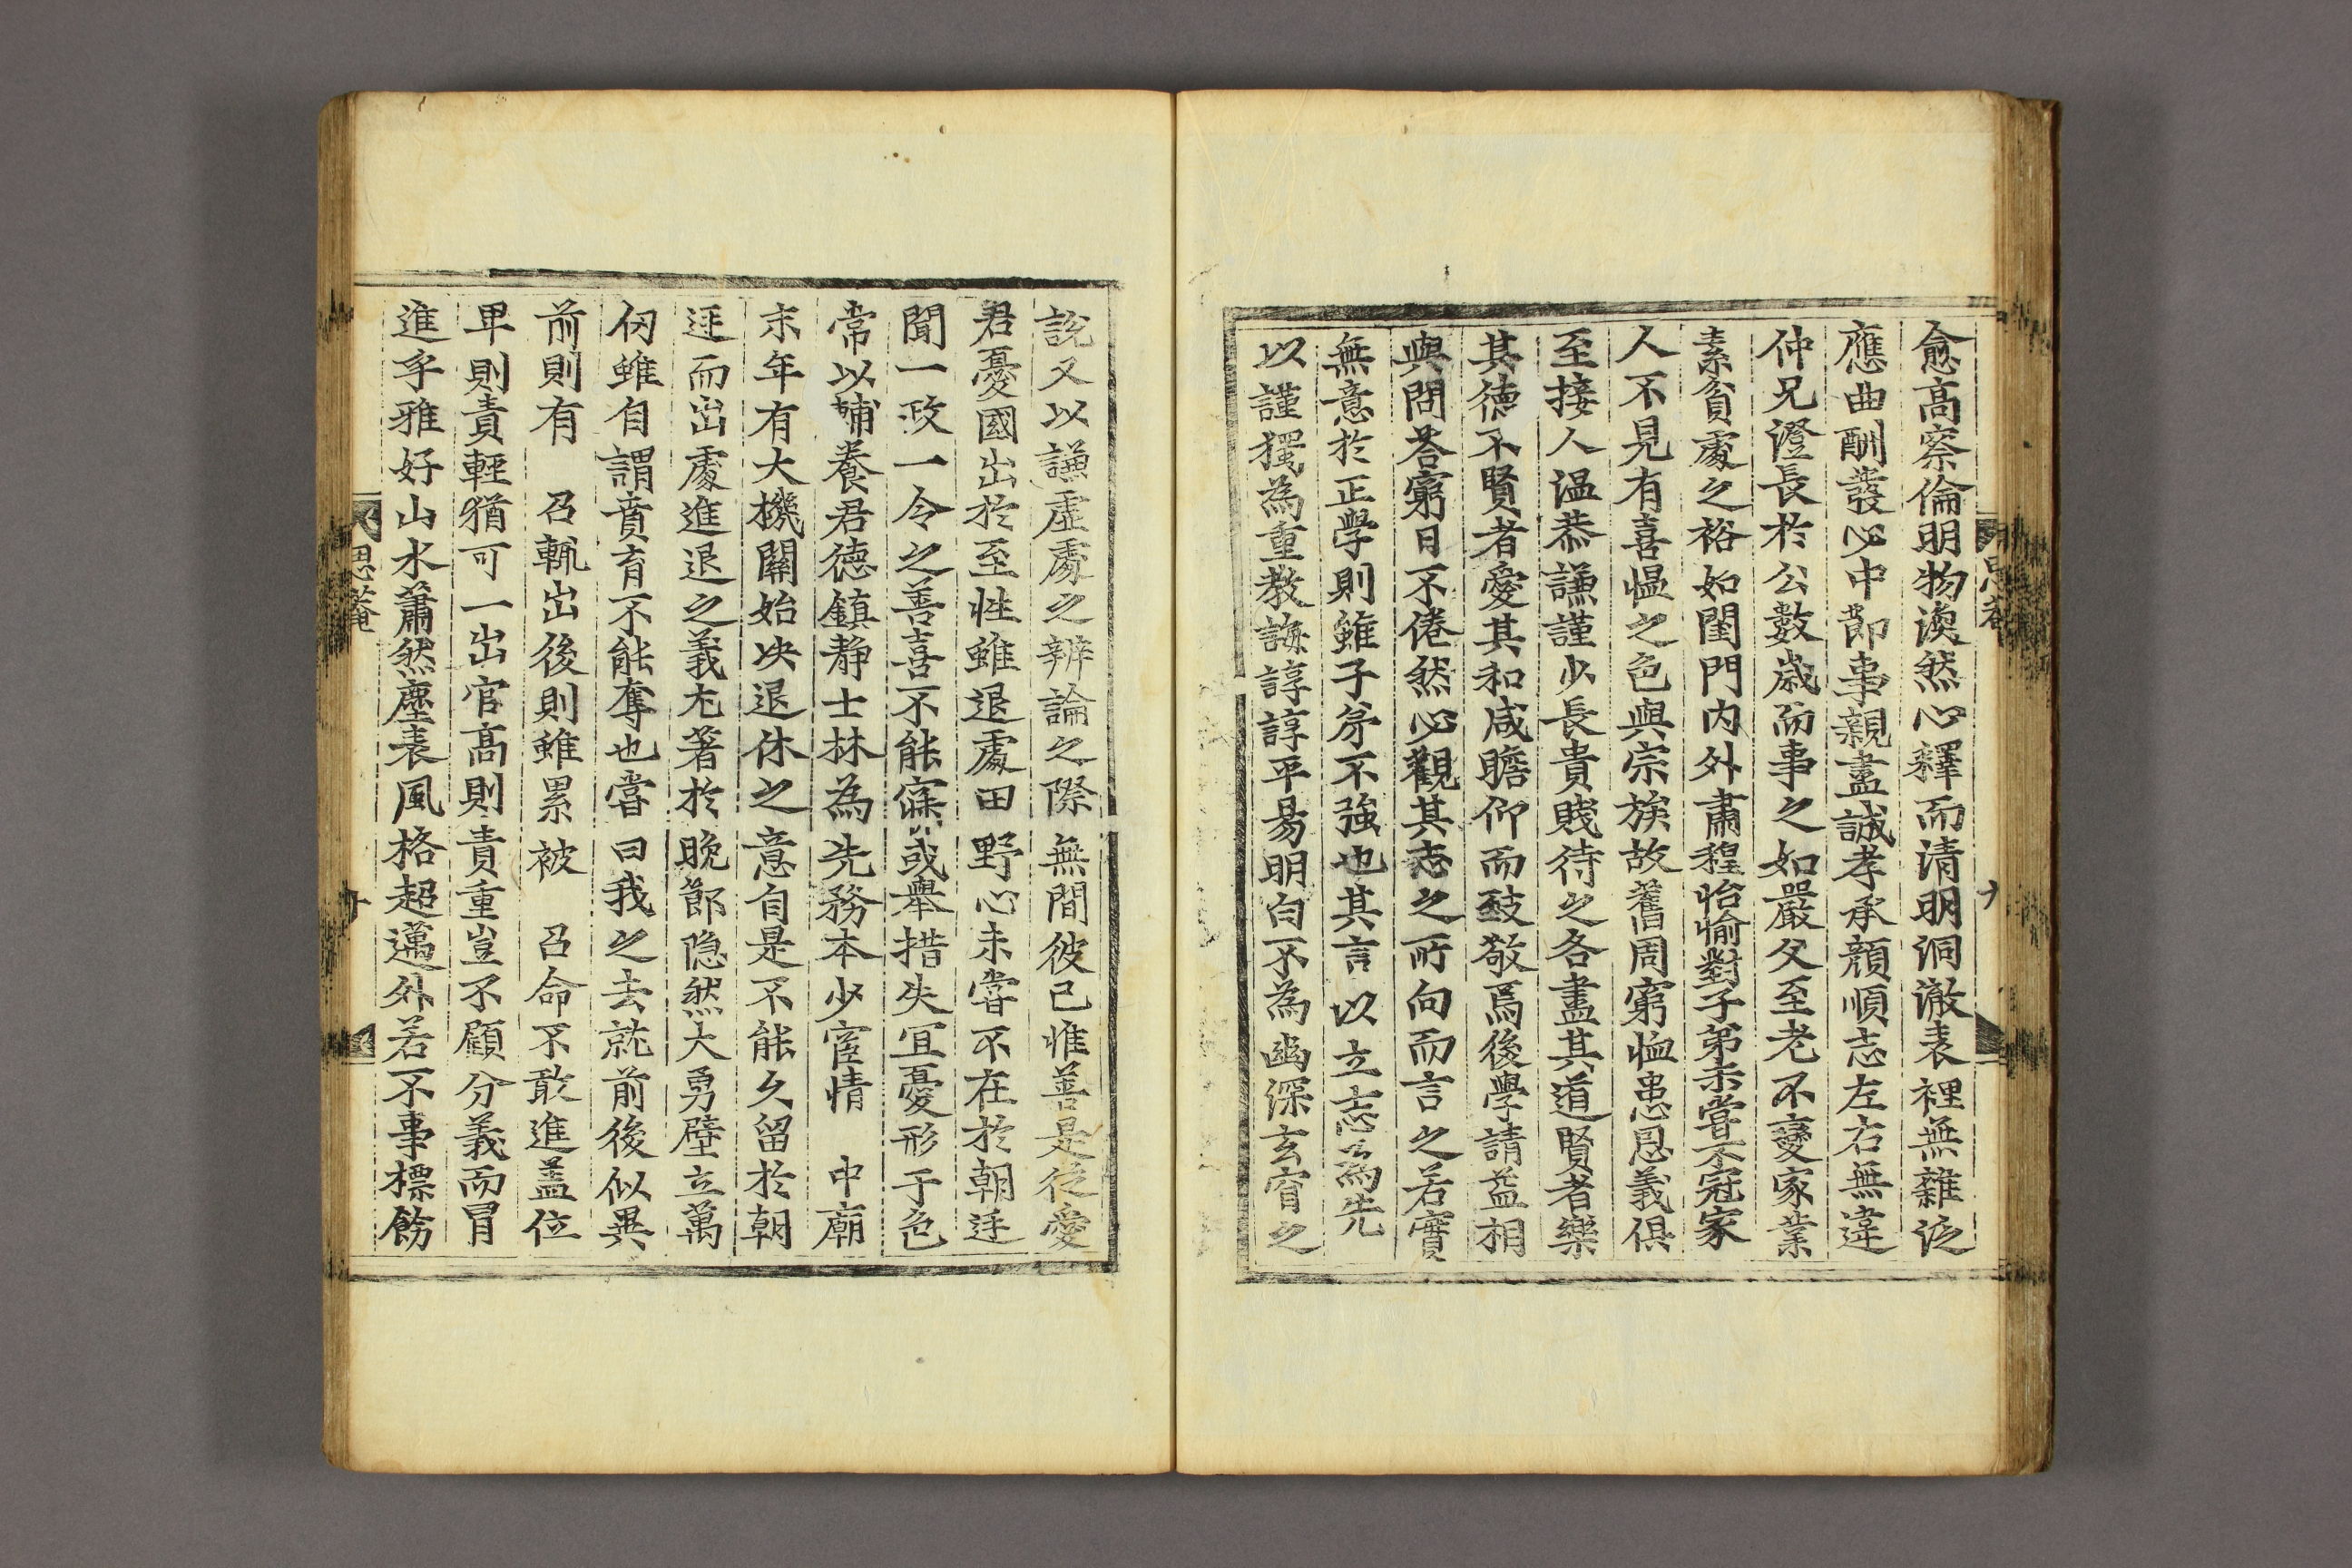 愈高察倫明物渙然心釋而清明洞澈表裡無雜泛
應曲酬發必中節事親盡誠孝承顔順志左右無違
仲兄澄長於公數歲而事之如嚴父至老不變家業
素貧處之裕如閨門内外肅穆怡愉對子弟未嘗不冠家
人不見有喜愠之色與宗族故舊周窮恤患恩義俱
至接人温恭謙謹少長貴賤待之各盡其道賢者樂
其德不賢者愛其和咸瞻仰而致敬焉後學請益相
與問答窮日不倦然必觀其志之所向而言之若實
無意於正學則雖子弟不強也其言以立志爲先
以謹獨為重教誨諄諄平易明白不為幽深玄窅之
說又以謙虛處之辨論之際無間彼己惟善是從愛
君憂國出於至性雖退處田野心未嘗不在於朝廷
聞一政一令之善喜不能寐或舉措失宜憂形于色
常以輔養君德鎮静士林為先務本少宦情 中廟
末年有大機關始决退休之意自是不能久留於朝
廷而出處進退之義尤著於晚節隐然大勇壁立萬
仞雖自謂賁育不能奪也嘗曰我之去就前後似異
前則有 召輒出後則雖累被 召命不敢進盖位
卑則責輕猶可一出官高則責重豈不顧分義而冒
進乎雅好山水蕭然塵表風格超邁外若不事標飭
思菴